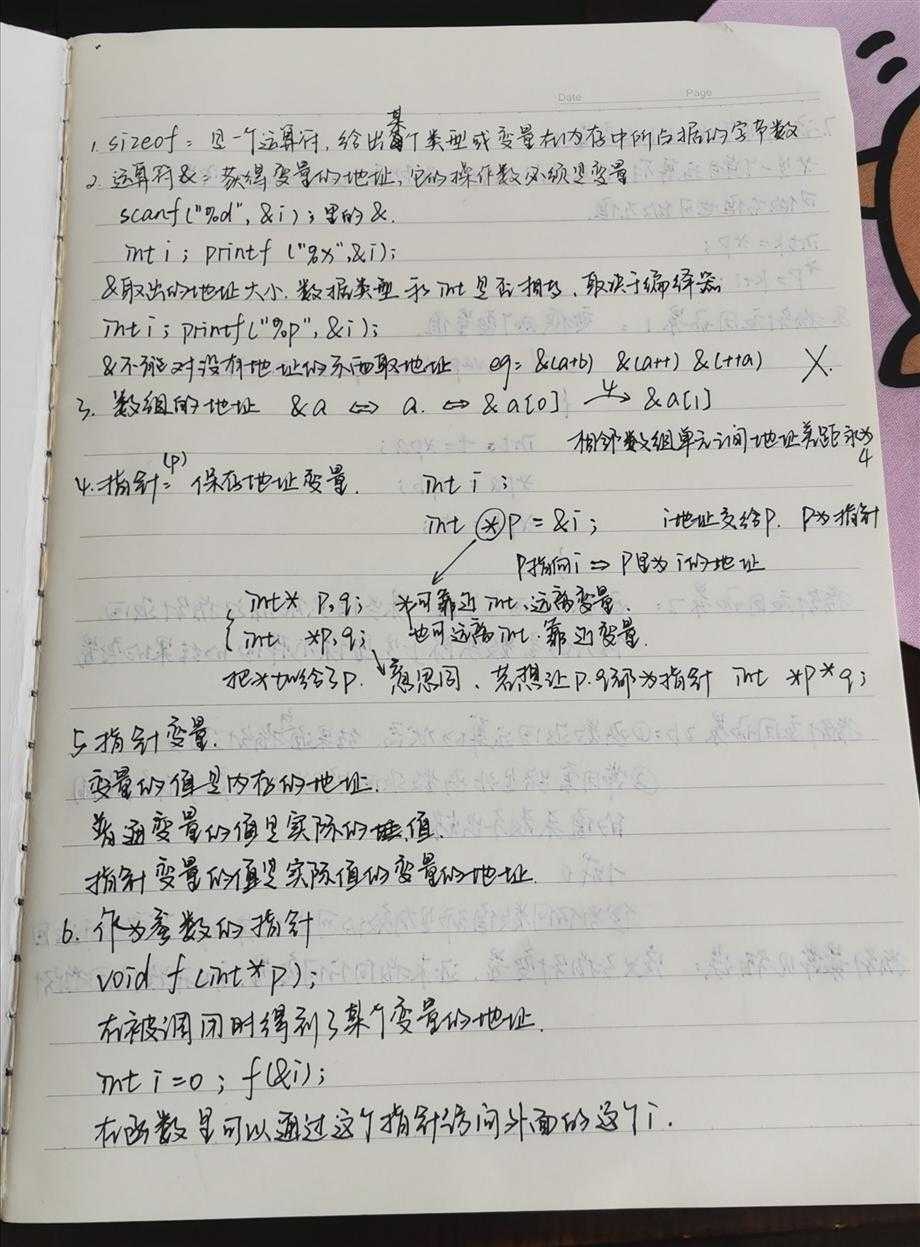 Date Page
1. sizeof: 是一个运算符, 给出某个类型或变量在内存中所占据的字节数
2. 运算符&: 获得变量的地址, 它的操作数必须是变量
scanf("%d", &i); 里的&.
int i; printf ("%x",&i);
&取出的地址大小, 数据类型 和int是否相等、取决于编译器
int i; printf("%p", &i);
&不能对没有地址的东西取地址 eg: &(a+b) &(a++) &(++a) X.
3. 数组的地址 &a ⇔ a. ⇔ &a[0] 4→ &a[1]
相邻数组单元之间地址差距永为4
4. 指针(p): 保存地址变量. int i;
int *p = &i; i地址交给p. p为指针
p指向i ⇒ p里为i的地址
{ int* p,q; *可靠近int、远离变量.
int *p,q; 也可远离int、靠近变量.
把*加给了p. 意思同、若想让p.q都为指针 int *p*q;
5 指针变量.
变量的值是内存的地址.
普通变量的值是实际的值.
指针变量的值是实际值的变量的地址.
6. 作为参数的指针
void f (int*p);
在被调用时得到了某个变量的地址.
int i=0; f(&i);
在函数里可以通过这个指针访问外面的这个i.